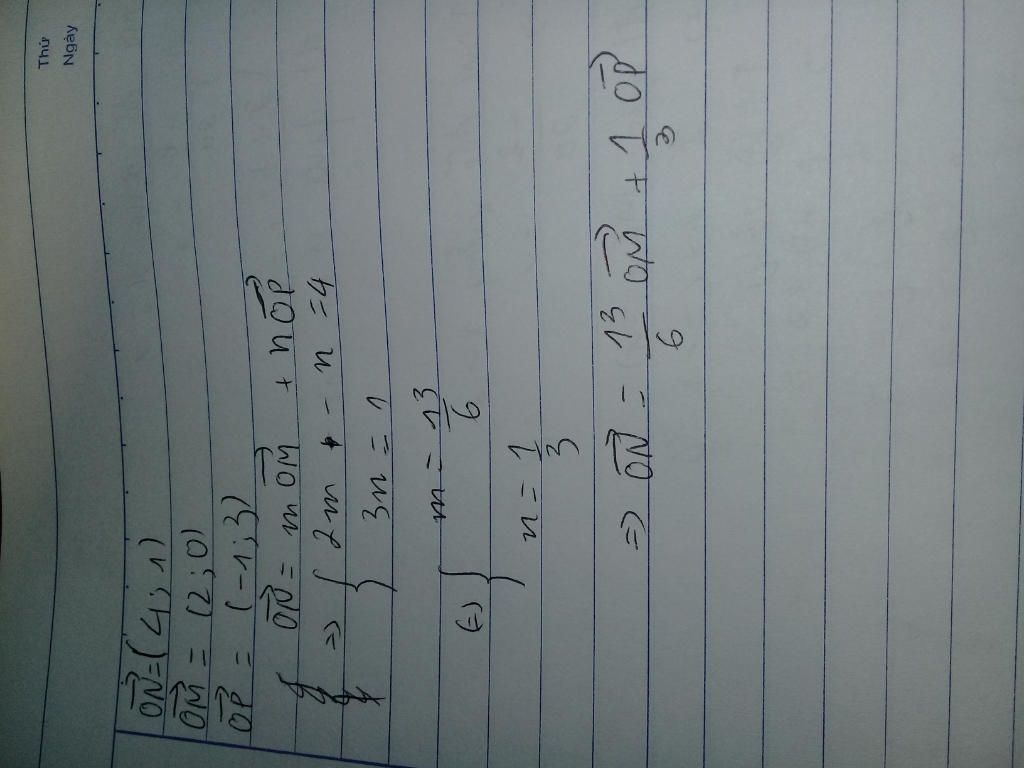 Thứ
Ngày
ON⃗ = (4; 1)
OM⃗ = (2; 0)
OP⃗ = (-1; 3)
ON⃗ = m OM⃗ + n OP⃗
=> { 2m - n = 4
3n = 1
(=) { m = 13/6
n = 1/3
=> ON⃗ = 13/6 OM⃗ + 1/3 OP⃗